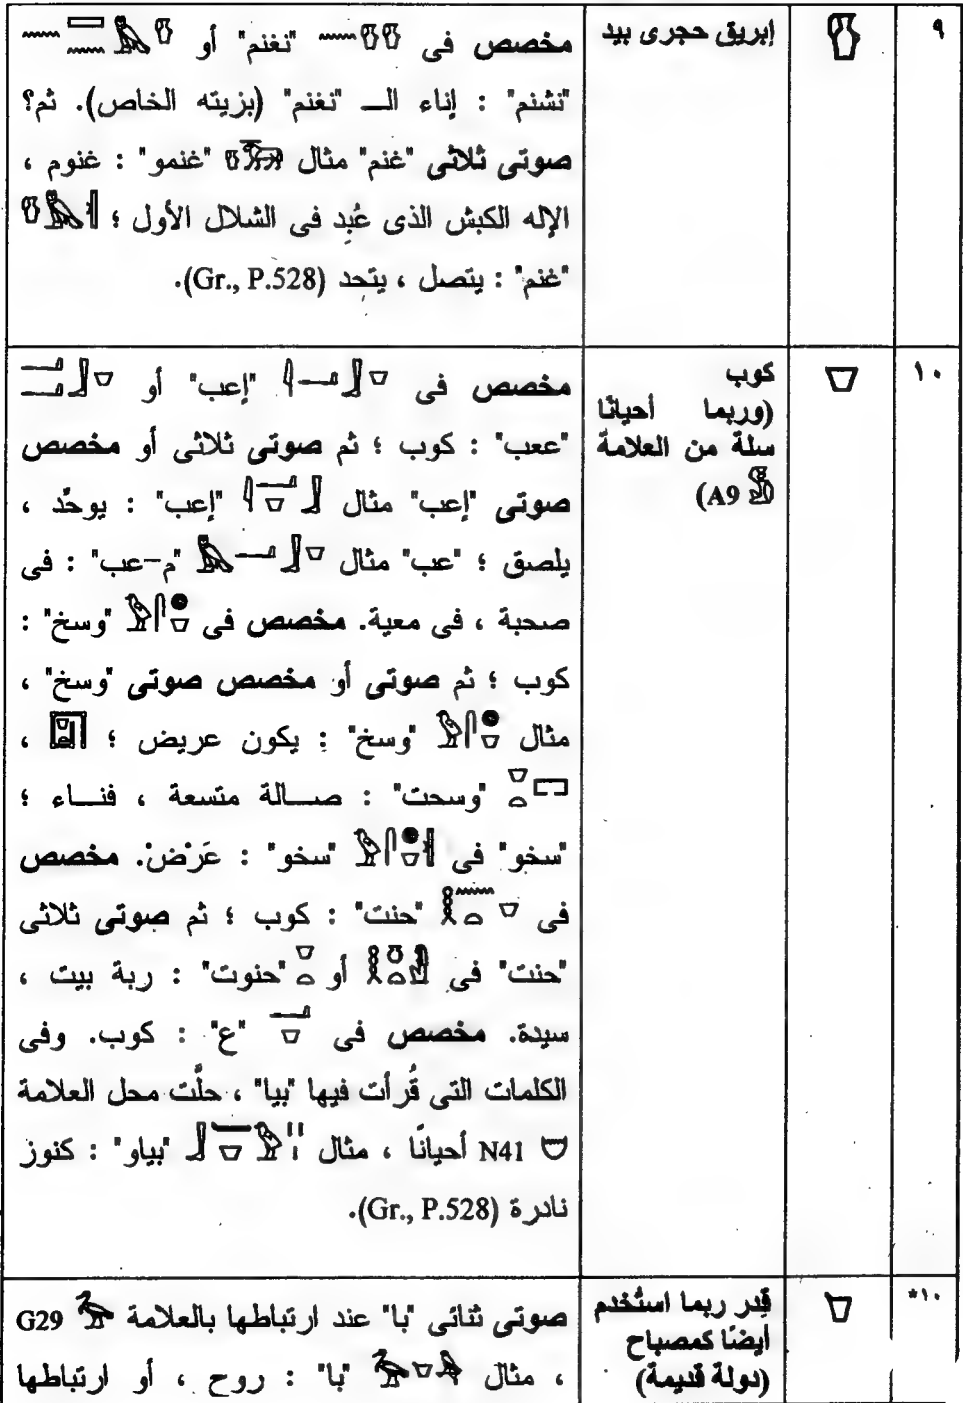 ٩
إبريق حجرى بيد
مخصص فى "نغنم" أو
"نشنم" : إناء الـ "نغنم" (بزيته الخاص). ثم؟
صوتى ثلاثى "غنم" مثال "غنمو" : غنوم ،
الإله الكبش الذى عُبِد فى الشلال الأول ؛
"غنم" : يتصل ، يتحد (Gr., P.528).
١٠
كوب
(وربما أحيانًا
سلة من العلامة
A9)
مخصص فى "إعب" أو
"ععب" : كوب ؛ ثم صوتى ثلاثى أو مخصص
صوتى "إعب" مثال "إعب" : يوحِّد ،
يلصق ؛ "عب" مثال "م-عب" : فى
صحبة ، فى معية. مخصص فى "وسخ" :
كوب ؛ ثم صوتى أو مخصص صوتى "وسخ" ،
مثال "وسخ" : يكون عريض ؛ ،
"وسحت" : صـالة متسعة ، فنـاء ؛
"سخو" فى "سخو" : عَرْضْ. مخصص
فى "حنت" : كوب ؛ ثم صوتى ثلاثى
"حنت" فى أو "حنوت" : ربة بيت ،
سيدة. مخصص فى "ع" : كوب. وفى
الكلمات التى قُرأت فيها "بيا" ، حلَّت محل العلامة
N41 أحيانًا ، مثال "بياو" : كنوز
نادرة (Gr., P.528).
١٠*
قِدر ربما استُخدم
أيضًا كمصباح
(دولة قديمة)
صوتى ثنائى "با" عند ارتباطها بالعلامة G29
، مثال "با" : روح ، أو ارتباطها